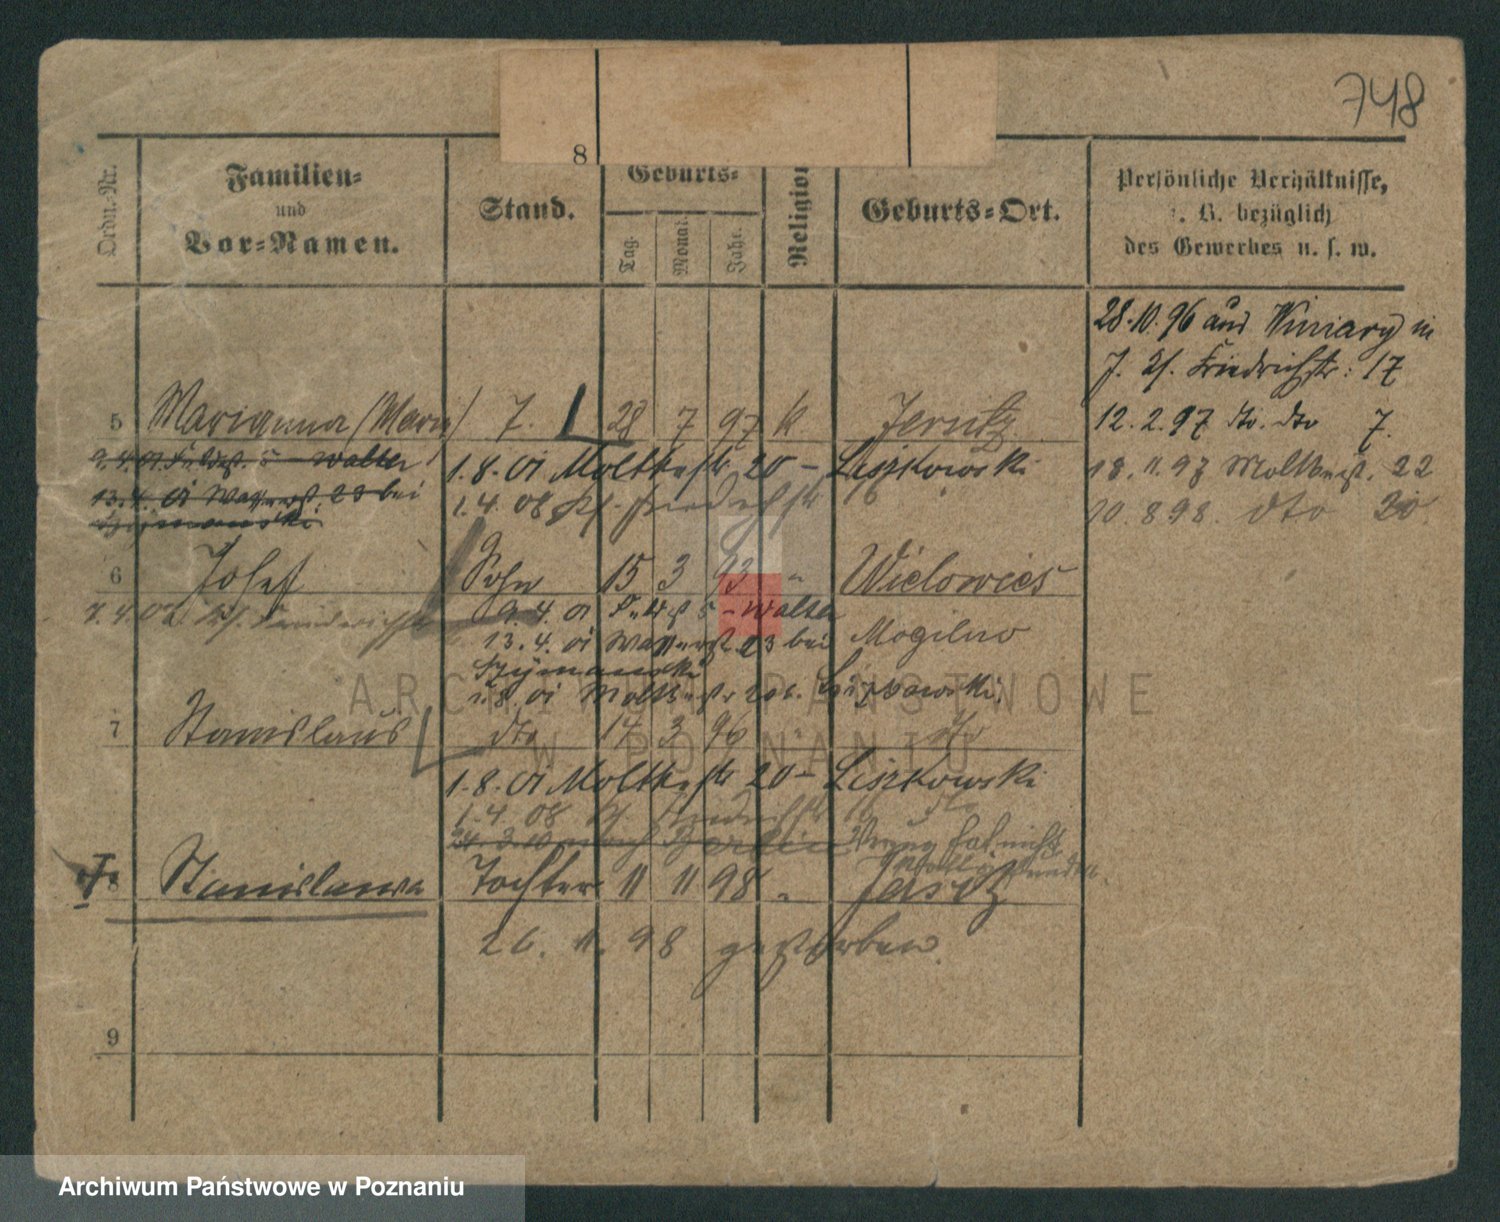 748
8
Ordn.-Nr.
Familien-
und
Vor-Namen.
Stand.
Geburts-
Tag.
Monat.
Jahr.
Religion
Geburts-Ort.
Persönliche Verhältnisse,
z. B. bezüglich
des Gewerbes u. s. w.
28.10.96 aus Winiary in
J. Friedrichstr: 17
5 Marianna (Marie) T. 28 7 97 k. Jersitz
12.2.97 dto. dto 7.
9.4.01 5 Walter
1.8.01 Moltkestr 20 - Liszkowski
18.11.97 Moltkestr. 22
13.4.01 23 bei
Szymanski
1.4.08 Friedrichstr 16
10.8.98. dto 20.
6 Josef Sohn 15 3 93 " Wielowies
Friedrichstr
9.4.01 5 - Walter
13.4.01 23 bei Mogilno
Szymanski
1.8.01 Moltkestr 20 b. Liszkowski.
7 Stanislaus dto 17 3 96 " dto
1.8.01 Moltkestr 20 - Liszkowski
1.4.08 Friedrichstr 16 dto
24.3. nach Berlin hat nicht
8 Stanislawa Tochter 11 11 98 " Jersitz
26.11.98 gestorben.
9
ARCHIWUM PAŃSTWOWE
W POZNANIU
Archiwum Państwowe w Poznaniu